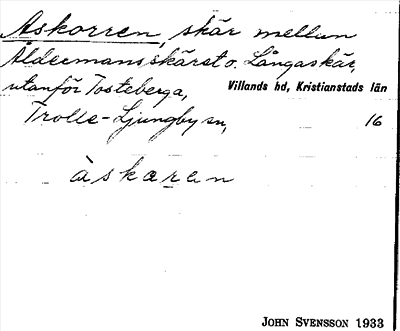 Åskorren, skär mellan
Åldermansskäret o. Långaskär,
utanför Tosteberga, Villands hd, Kristianstads län
Trolle-Ljungby sn, 16
àskɷren
JOHN SVENSSON 1933